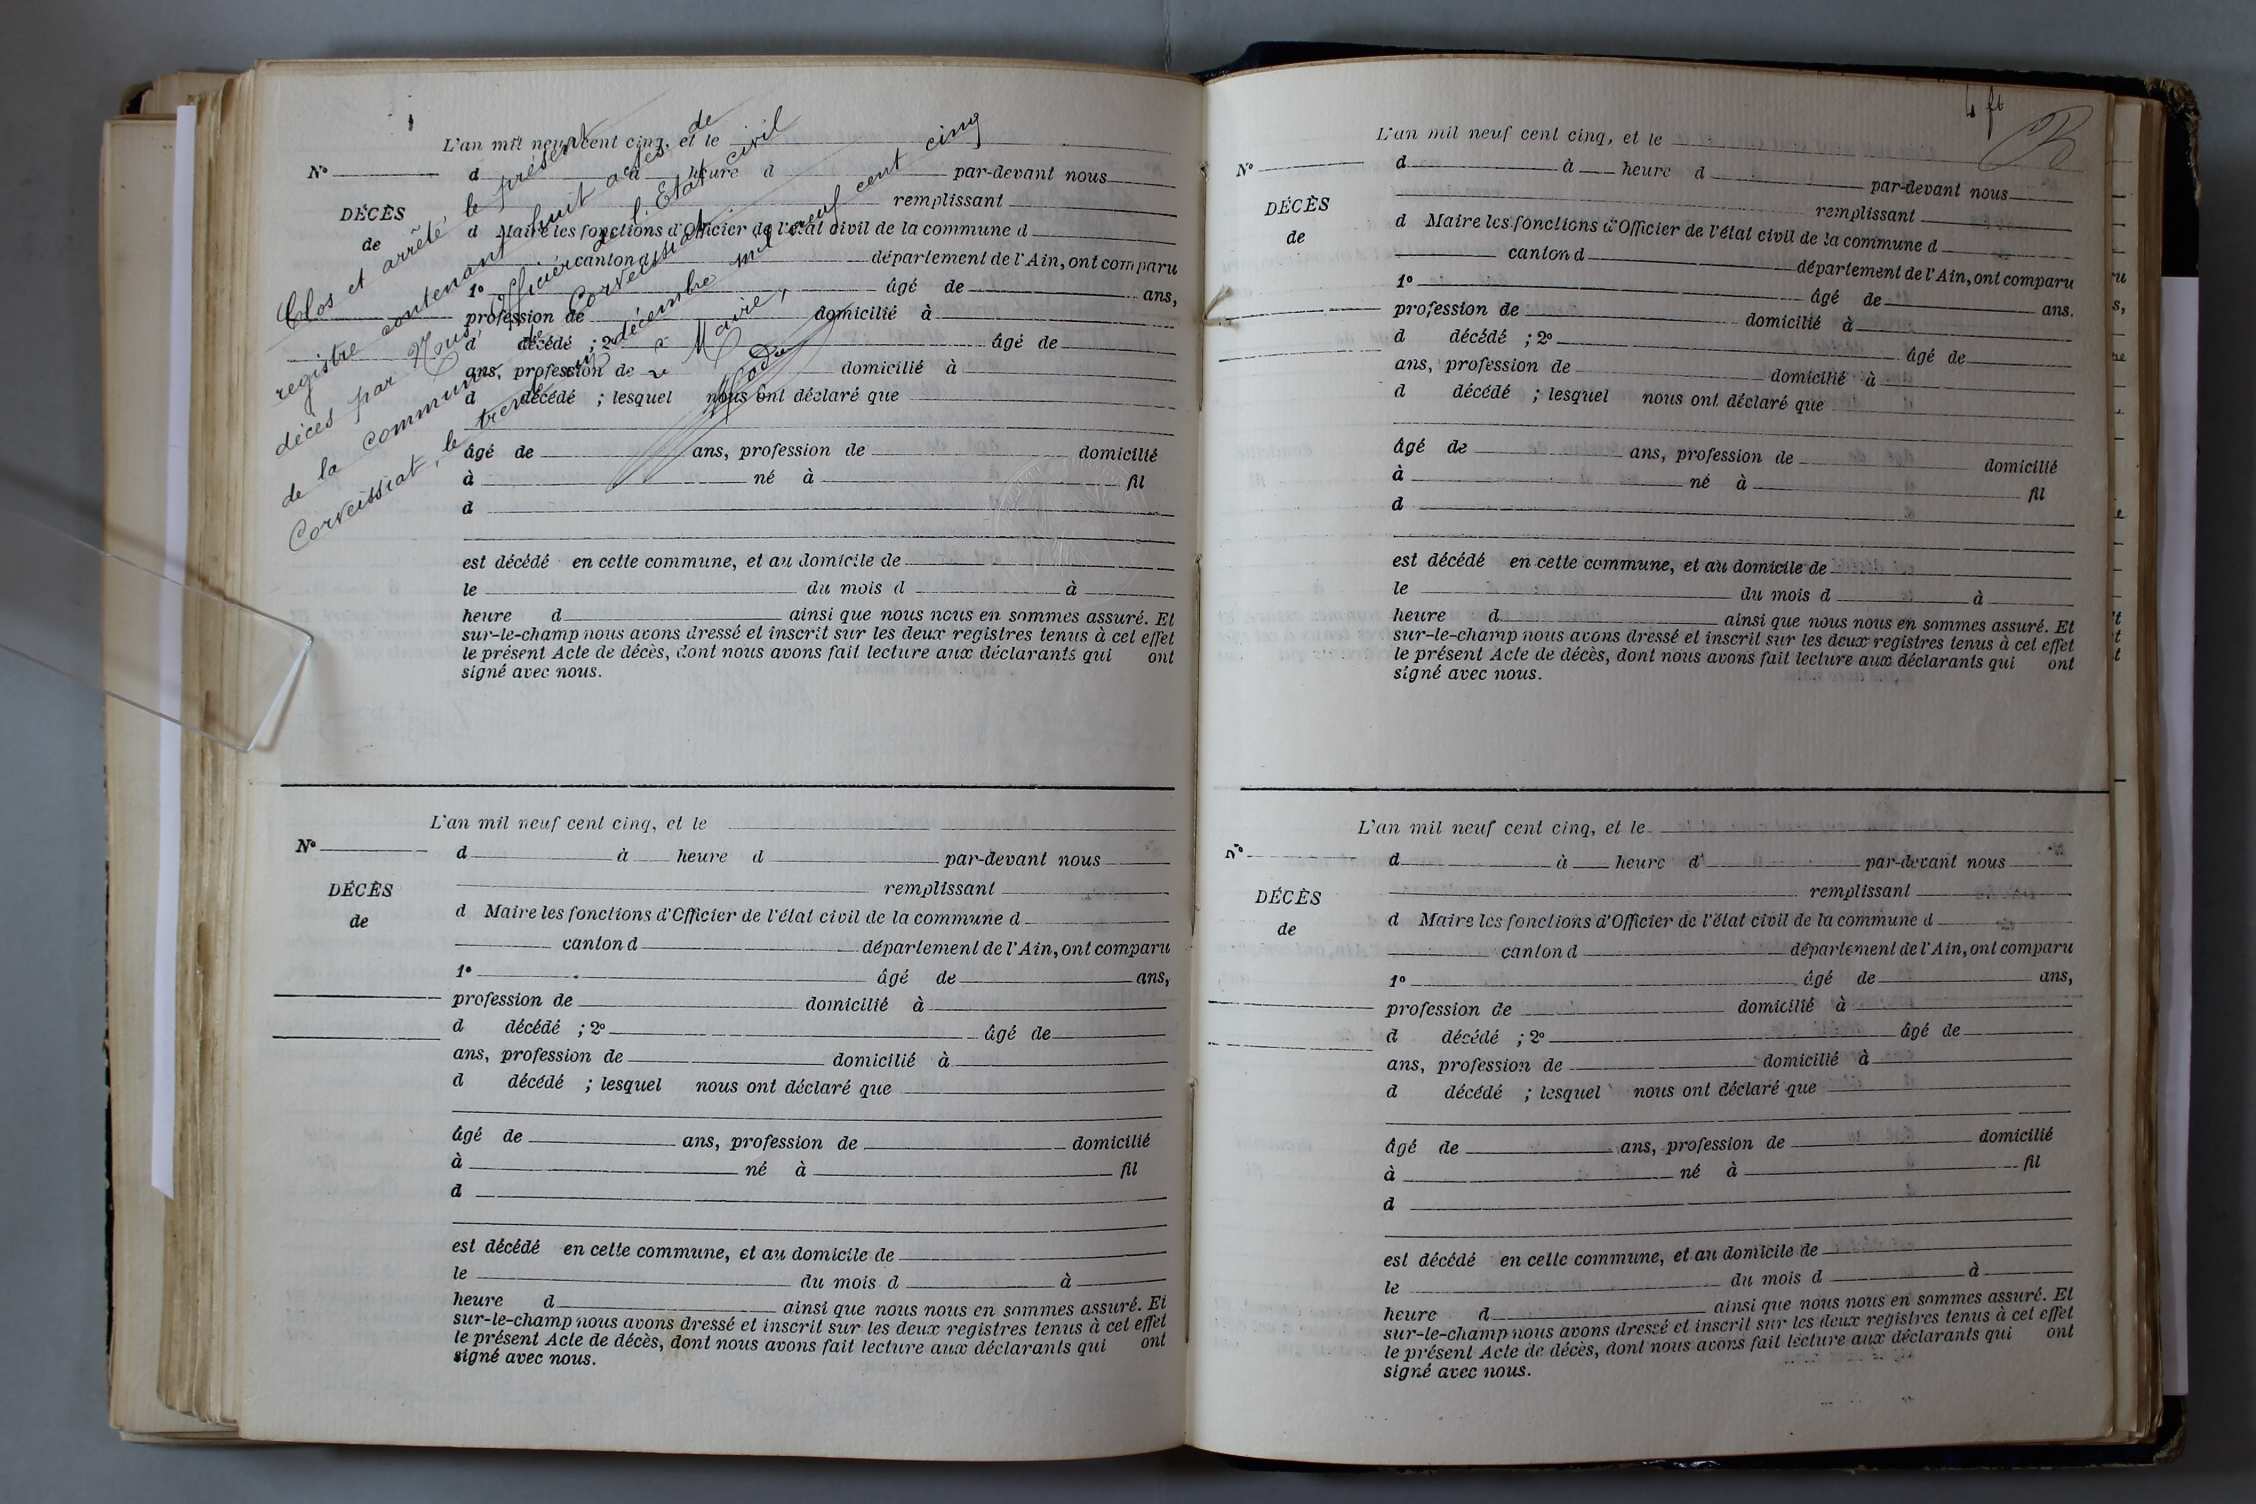 L'an mil neuf cent cinq, et le
N° d à heure d par-devant nous
remplissant
DÉCÈS
de
d Maire les fonctions d'Officier de l'état civil de la commune d
canton d département de l'Ain, ont comparu
1° âgé de ans,
profession de domicilié à
d décédé ; 2° âgé de
ans, profession de domicilié à
d décédé ; lesquel nous ont déclaré que
âgé de ans, profession de domicilié
à né à fil
d
est décédé en cette commune, et au domicile de
le du mois d à
heure d ainsi que nous nous en sommes assuré. Et
sur-le-champ nous avons dressé et inscrit sur les deux registres tenus à cet effet
le présent Acte de décès, dont nous avons fait lecture aux déclarants qui ont
signé avec nous.
Clos et arrêté, le présent
registre contenant huit actes de
décès par Nous, Officier de l'Etat civil
de la commune de Corveissiat
Corveissiat, le trente un décembre mil neuf cent cinq
Le Maire,
L'an mil neuf cent cinq, et le
N° d à heure d par-devant nous
remplissant
DÉCÈS
de
d Maire les fonctions d'Officier de l'état civil de la commune d
canton d département de l'Ain, ont comparu
1° âgé de ans,
profession de domicilié à
d décédé ; 2° âgé de
ans, profession de domicilié à
d décédé ; lesquel nous ont déclaré que
âgé de ans, profession de domicilié
à né à fil
d
est décédé en cette commune, et au domicile de
le du mois d à
heure d ainsi que nous nous en sommes assuré. Et
sur-le-champ nous avons dressé et inscrit sur les deux registres tenus à cet effet
le présent Acte de décès, dont nous avons fait lecture aux déclarants qui ont
signé avec nous.
L'an mil neuf cent cinq, et le
N° d à heure d par-devant nous
remplissant
DÉCÈS
de
d Maire les fonctions d'Officier de l'état civil de la commune d
canton d département de l'Ain, ont comparu
1° âgé de ans.
profession de domicilié à
d décédé ; 2° âgé de
ans, profession de domicilié à
d décédé ; lesquel nous ont déclaré que
âgé de ans, profession de domicilié
à né à fil
d
est décédé en cette commune, et au domicile de
le du mois d à
heure d ainsi que nous nous en sommes assuré. Et
sur-le-champ nous avons dressé et inscrit sur les deux registres tenus à cet effet
le présent Acte de décès, dont nous avons fait lecture aux déclarants qui ont
signé avec nous.
L'an mil neuf cent cinq, et le
N° d à heure d par-devant nous
remplissant
DÉCÈS
de
d Maire les fonctions d'Officier de l'état civil de la commune d
canton d département de l'Ain, ont comparu
1° âgé de ans,
profession de domicilié à
d décédé ; 2° âgé de
ans, profession de domicilié à
d décédé ; lesquel nous ont déclaré que
âgé de ans, profession de domicilié
à né à fil
d
est décédé en cette commune, et au domicile de
le du mois d à
heure d ainsi que nous nous en sommes assuré. Et
sur-le-champ nous avons dressé et inscrit sur les deux registres tenus à cet effet
le présent Acte de décès, dont nous avons fait lecture aux déclarants qui ont
signé avec nous.